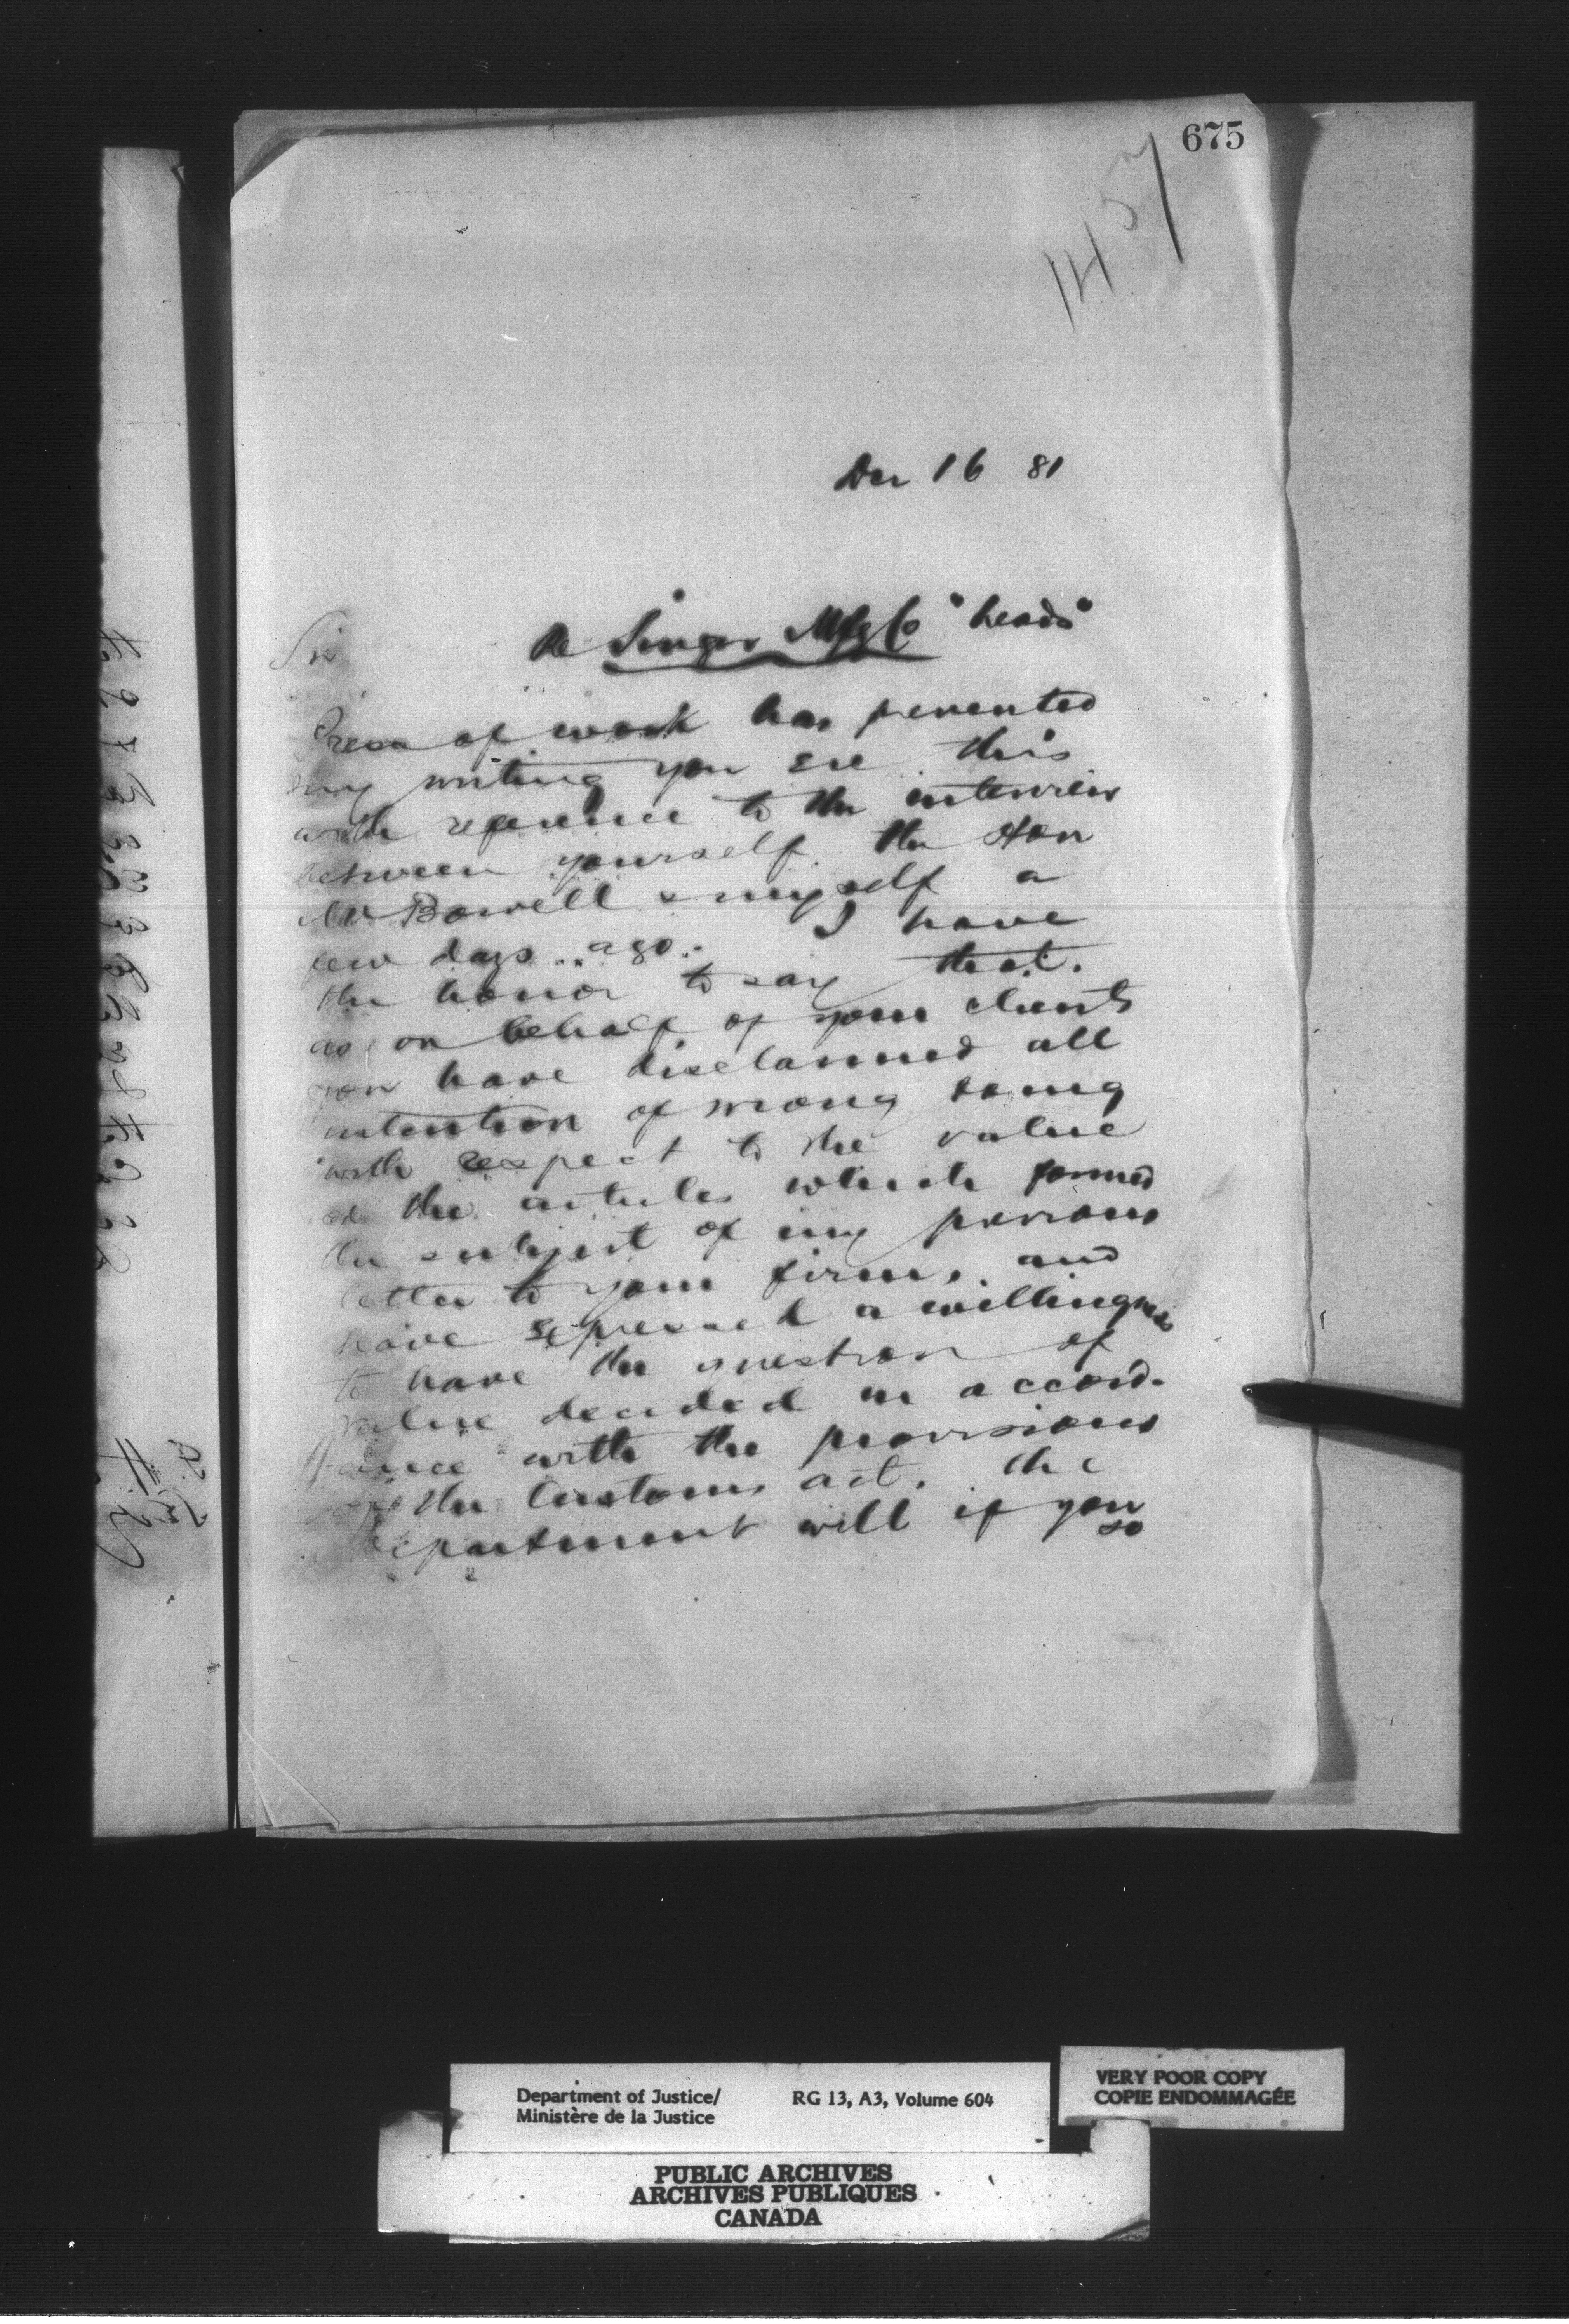 675
1457
Dec 16 81
Re Singer Mfg Co "heads"
Sir
Press of work has prevented
my writing you ere this
with reference to the interview
between yourself the Hon
Mr Bowell & myself a
few days ago. I have
the honor to say that.
as on behalf of your clients
you have disclaimed all
intention of wrong doing
with respect to the value
of the articles which formed
the subject of my previous
letter to your firm, and
have expressed a willingness
to have the question of
value decided in accord-
ance with the provisions
of the Customs act. the
Department will if you
so
Department of Justice/
Ministère de la Justice
RG 13, A3, Volume 604
VERY POOR COPY
COPIE ENDOMMAGÉE
PUBLIC ARCHIVES
ARCHIVES PUBLIQUES
CANADA